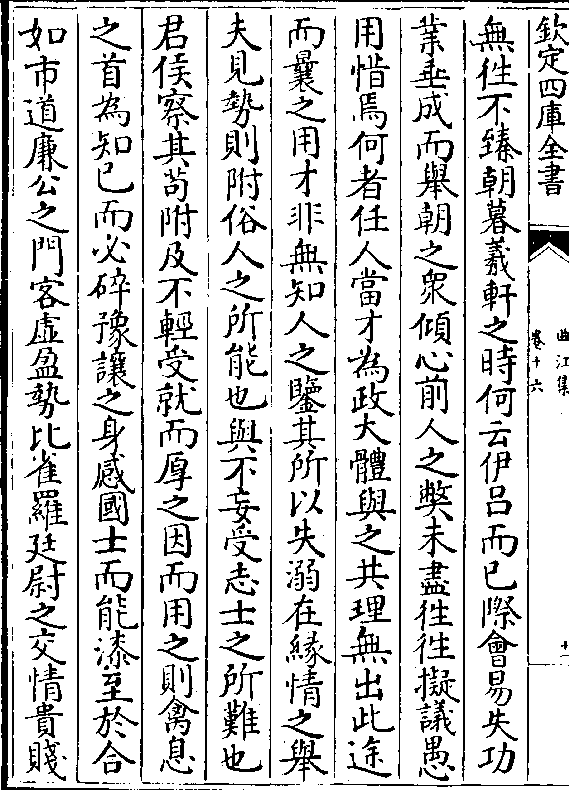 欽定四庫全書
曲江集
卷十六
十一
無徃不臻朝暮羲軒之時何云伊吕而已際會易失功
業垂成而舉朝之衆傾心前人之弊未盡徃徃擬議愚
用惜焉何者任人當才為政大體與之共理無出此途
而曩之用才非無知人之鑒其所以失溺在縁情之舉
夫見勢則附俗人之所能也與不妄受志士之所難也
君侯察其茍附及不輕受就而厚之因而用之則禽息
之首為知已而必碎豫讓之身感國士而能漆至於合
如市道廉公之門客虚盈勢比雀羅廷尉之交情貴賤